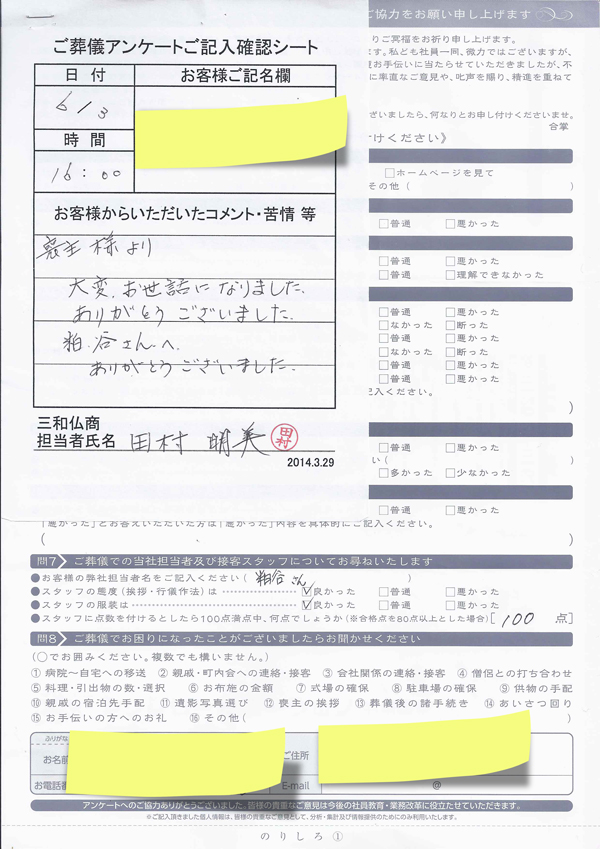 ご葬儀アンケートご記入確認シート
日付
お客様ご記名欄
6/3
時間
16:00
お客様からいただいたコメント・苦情 等
喪主様より
大変、お世話になりました。
ありがとうございました。
粕谷さんへ
ありがとうございました。
三和仏商
担当者氏名 田村 明美 田村
2014.3.29
ご協力をお願い申し上げます
りご冥福をお祈り申し上げます。
ます。私ども社員一同、微力ではございますが、
お手伝いに当たらせていただきましたが、不
に率直なご意見や、叱声を賜り、精進を重ねて
ざいましたら、何なりとお申し付けくださいませ。
合掌
けください》
□ホームページを見て
その他(
□普通 □悪かった
□普通 □悪かった
□普通 □理解できなかった
□普通 □悪かった
□なかった □断った
□普通 □悪かった
□なかった □断った
□普通 □悪かった
□普通 □悪かった
記入ください。
)
□普通 □悪かった
い( )
□多かった □少なかった
□普通 □悪かった
「悪かった」とお答えいただいた方は「悪かった」内容を具体的にご記入ください。
( )
問7 ご葬儀での当社担当者及び接客スタッフについてお尋ねいたします
●お客様の弊社担当者名をご記入ください( 粕谷さん )
●スタッフの態度(挨拶・行儀作法)は ☑良かった □普通 □悪かった
●スタッフの服装は ☑良かった □普通 □悪かった
●スタッフに点数を付けるとしたら100点満点中、何点でしょうか(※合格点を80点以上とした場合)[ 100 点]
問8 ご葬儀でお困りになったことがございましたらお聞かせください
(○でお囲みください。複数でも構いません。)
①病院～自宅への移送 ②親戚・町内会への連絡・接客 ③会社関係の連絡・接客 ④僧侶との打ち合わせ
⑤料理・引出物の数・選択 ⑥お布施の金額 ⑦式場の確保 ⑧駐車場の確保 ⑨供物の手配
⑩親戚の宿泊先手配 ⑪遺影写真選び ⑫喪主の挨拶 ⑬葬儀後の諸手続き ⑭あいさつ回り
⑮お手伝いの方へのお礼 ⑯その他( )
ふりがな
お名前
ご住所
お電話番
E-mail @
アンケートへのご協力ありがとうございました。皆様の貴重なご意見は今後の社員教育・業務改革に役立たせていただきます。
※ご記入頂きました個人情報は、皆様の貴重なご意見として、分析・集計及び情報提供のためにのみ利用いたします。
のりしろ①